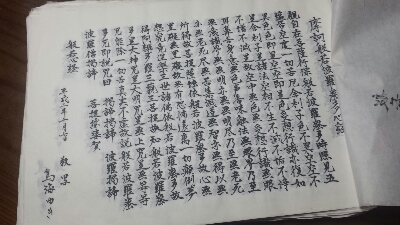 摩訶般若波羅蜜多心経
観自在菩薩行深般若波羅蜜多時照見五
蘊皆空度一切苦厄舎利子色不異空空不
異色色即是空空即是色受想行識亦復如
是舎利子是諸法空相不生不滅不垢不浄
不増不減是故空中無色無受想行識無眼
耳鼻舌身意無色声香味触法無眼界乃至
無意識界無無明亦無無明尽乃至無老死
亦無老死尽無苦集滅道無智亦無得以無
所得故菩提薩埵依般若波羅蜜多故心無
罣礙無罣礙故無有恐怖遠離一切顛倒夢
想究竟涅槃三世諸仏依般若波羅蜜多故
得阿耨多羅三藐三菩提故知般若波羅蜜
多是大神呪是大明呪是無上呪是無等等
呪能除一切苦真実不虚故説般若波羅蜜
多呪即説呪曰 羯諦羯諦 波羅羯諦
波羅僧羯諦 菩提薩婆賀
般若心経
平成 年 月 日 敬写
鳥海